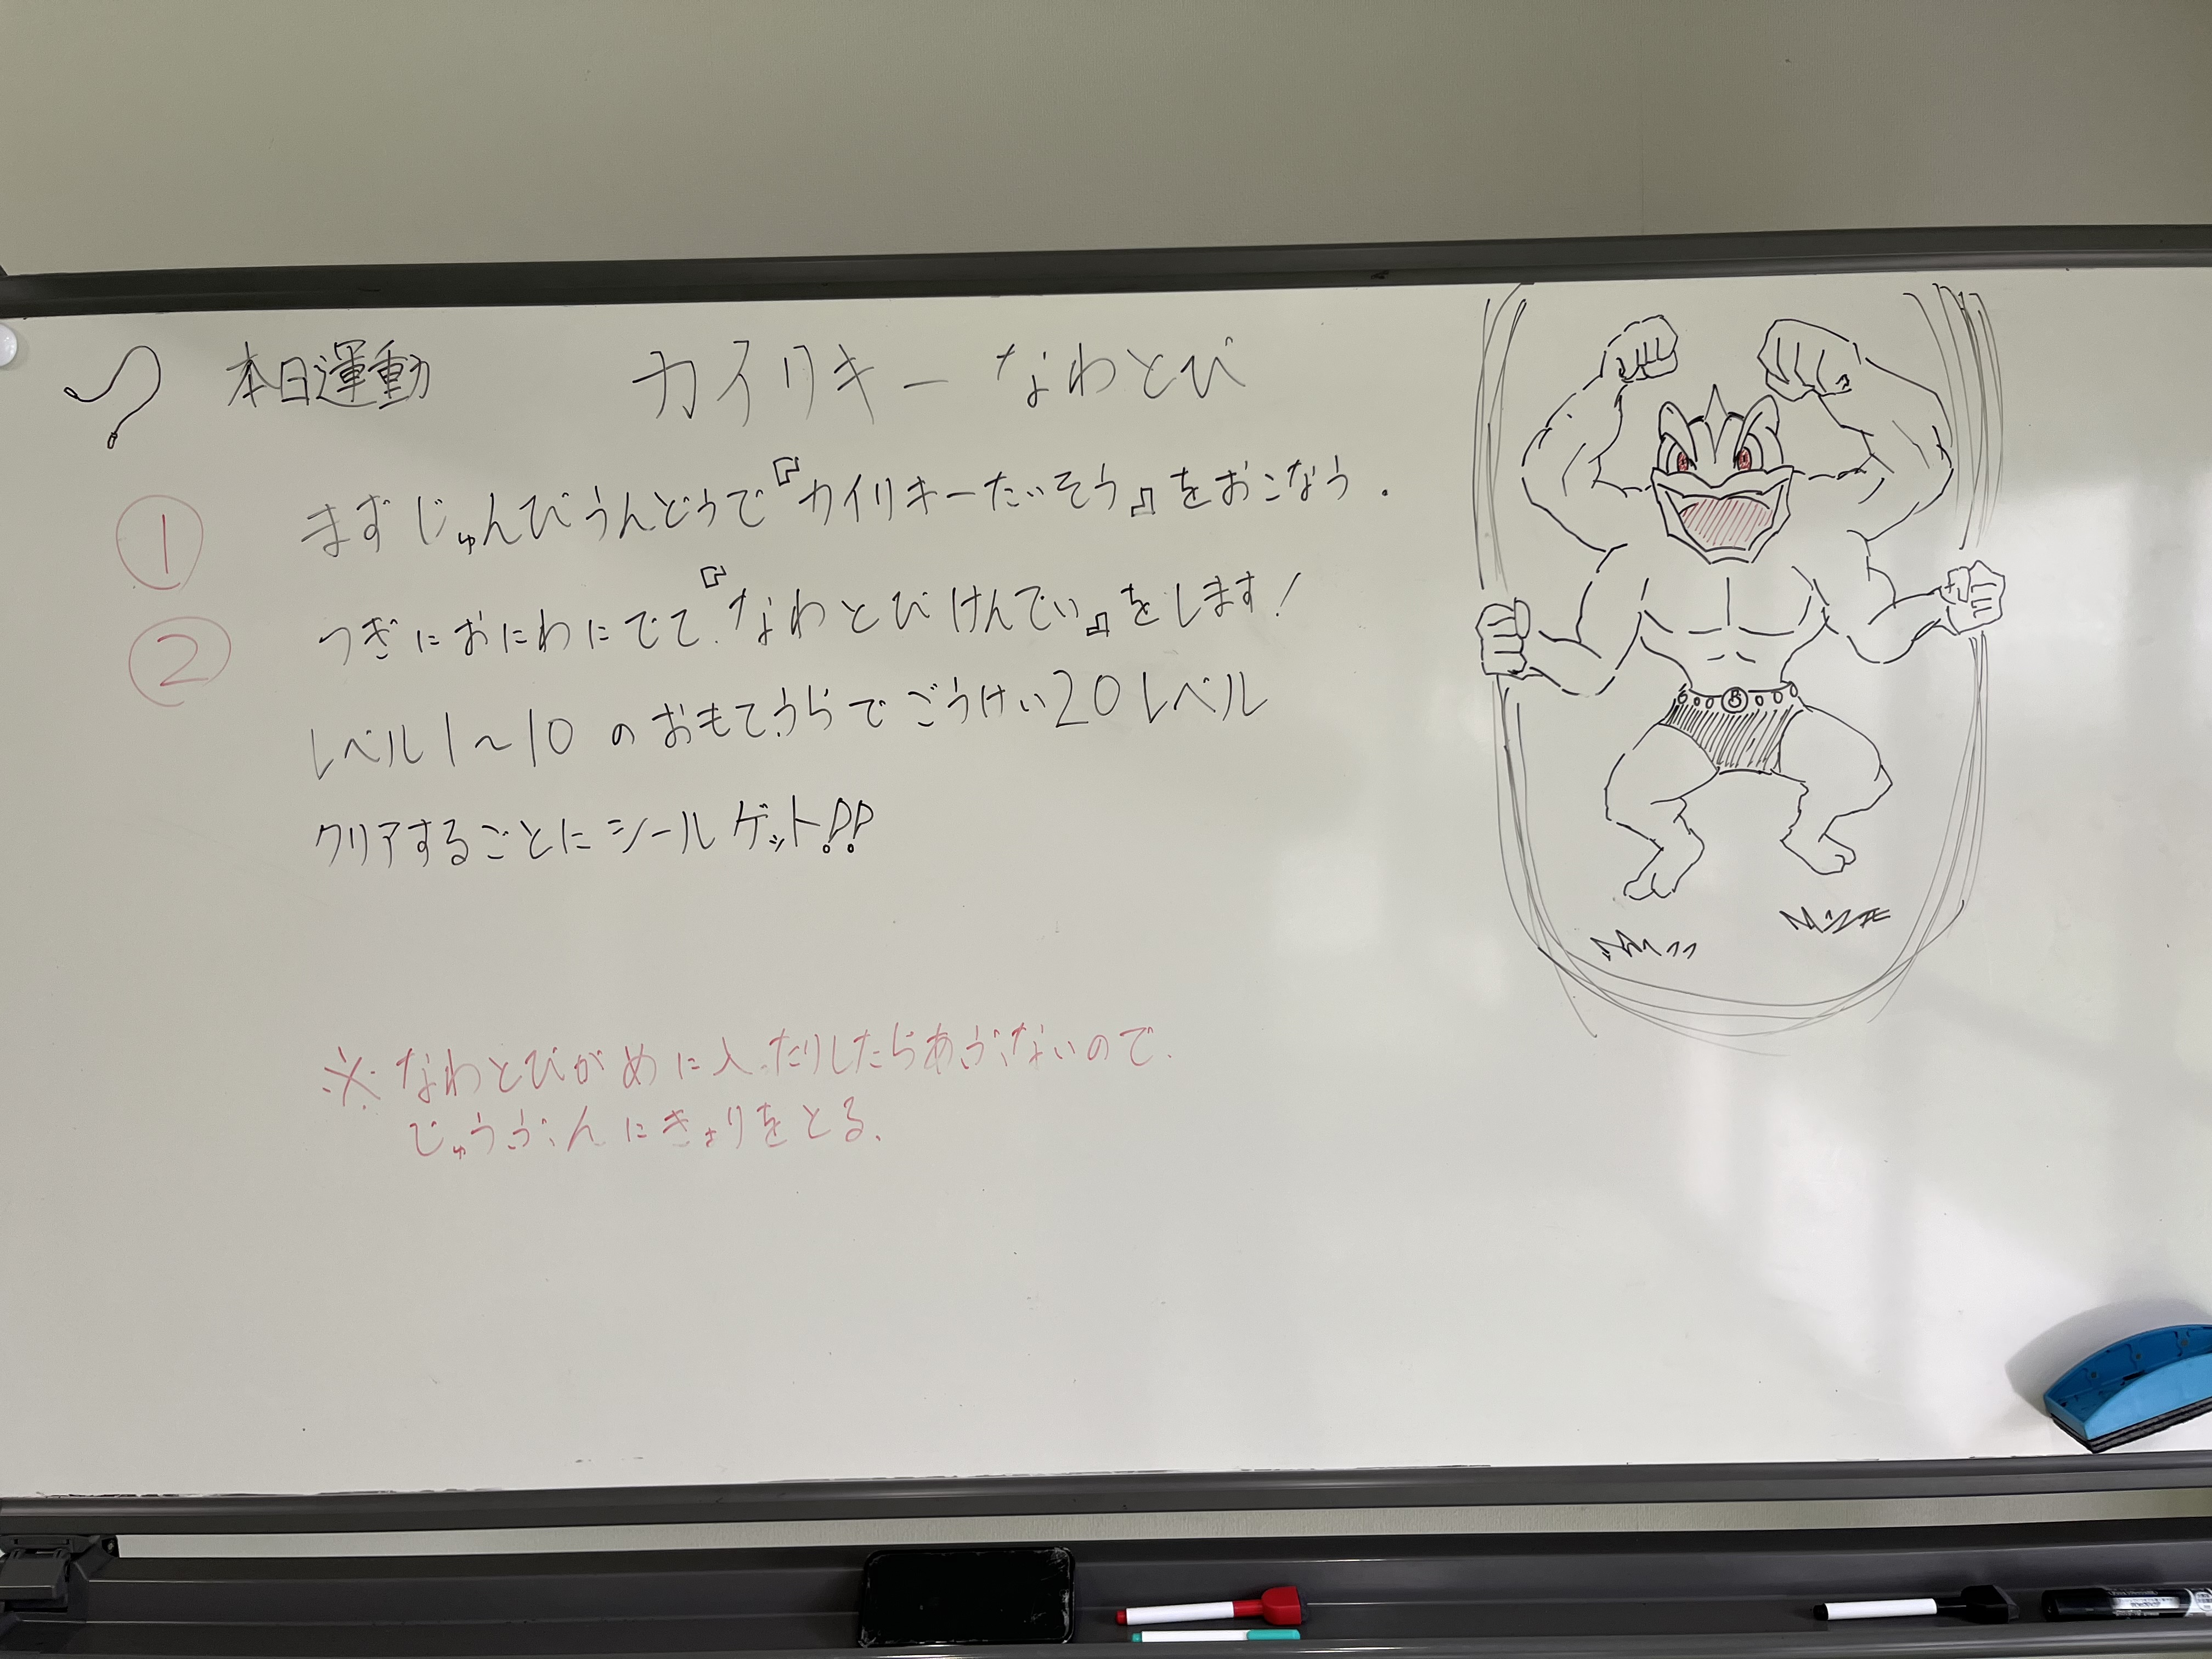 本日運動 カイリキー なわとび
① まずじゅんびうんどうで『カイリキーたいそう』をおこなう.
② つぎにおにわにでて.『なわとびけんてい』をします!
レベル1~10のおもてうらでごうけい20レベル
クリアするごとにシールゲット!!
※ なわとびがめに入ったりしたらあぶないので、
じゅうぶんにきょりをとる。